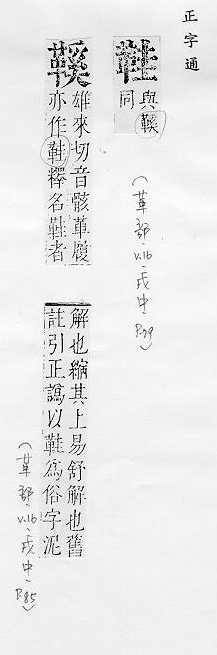 正字通
鞋
與䩺
同
(革部.V.16.戌中.P.79)
䩺
雄來切音骸革履
亦作鞋釋名鞋者
解也縮其上易舒解也舊
註引正譌以鞋為俗字泥
(革部.V.16.戌中.P.85)